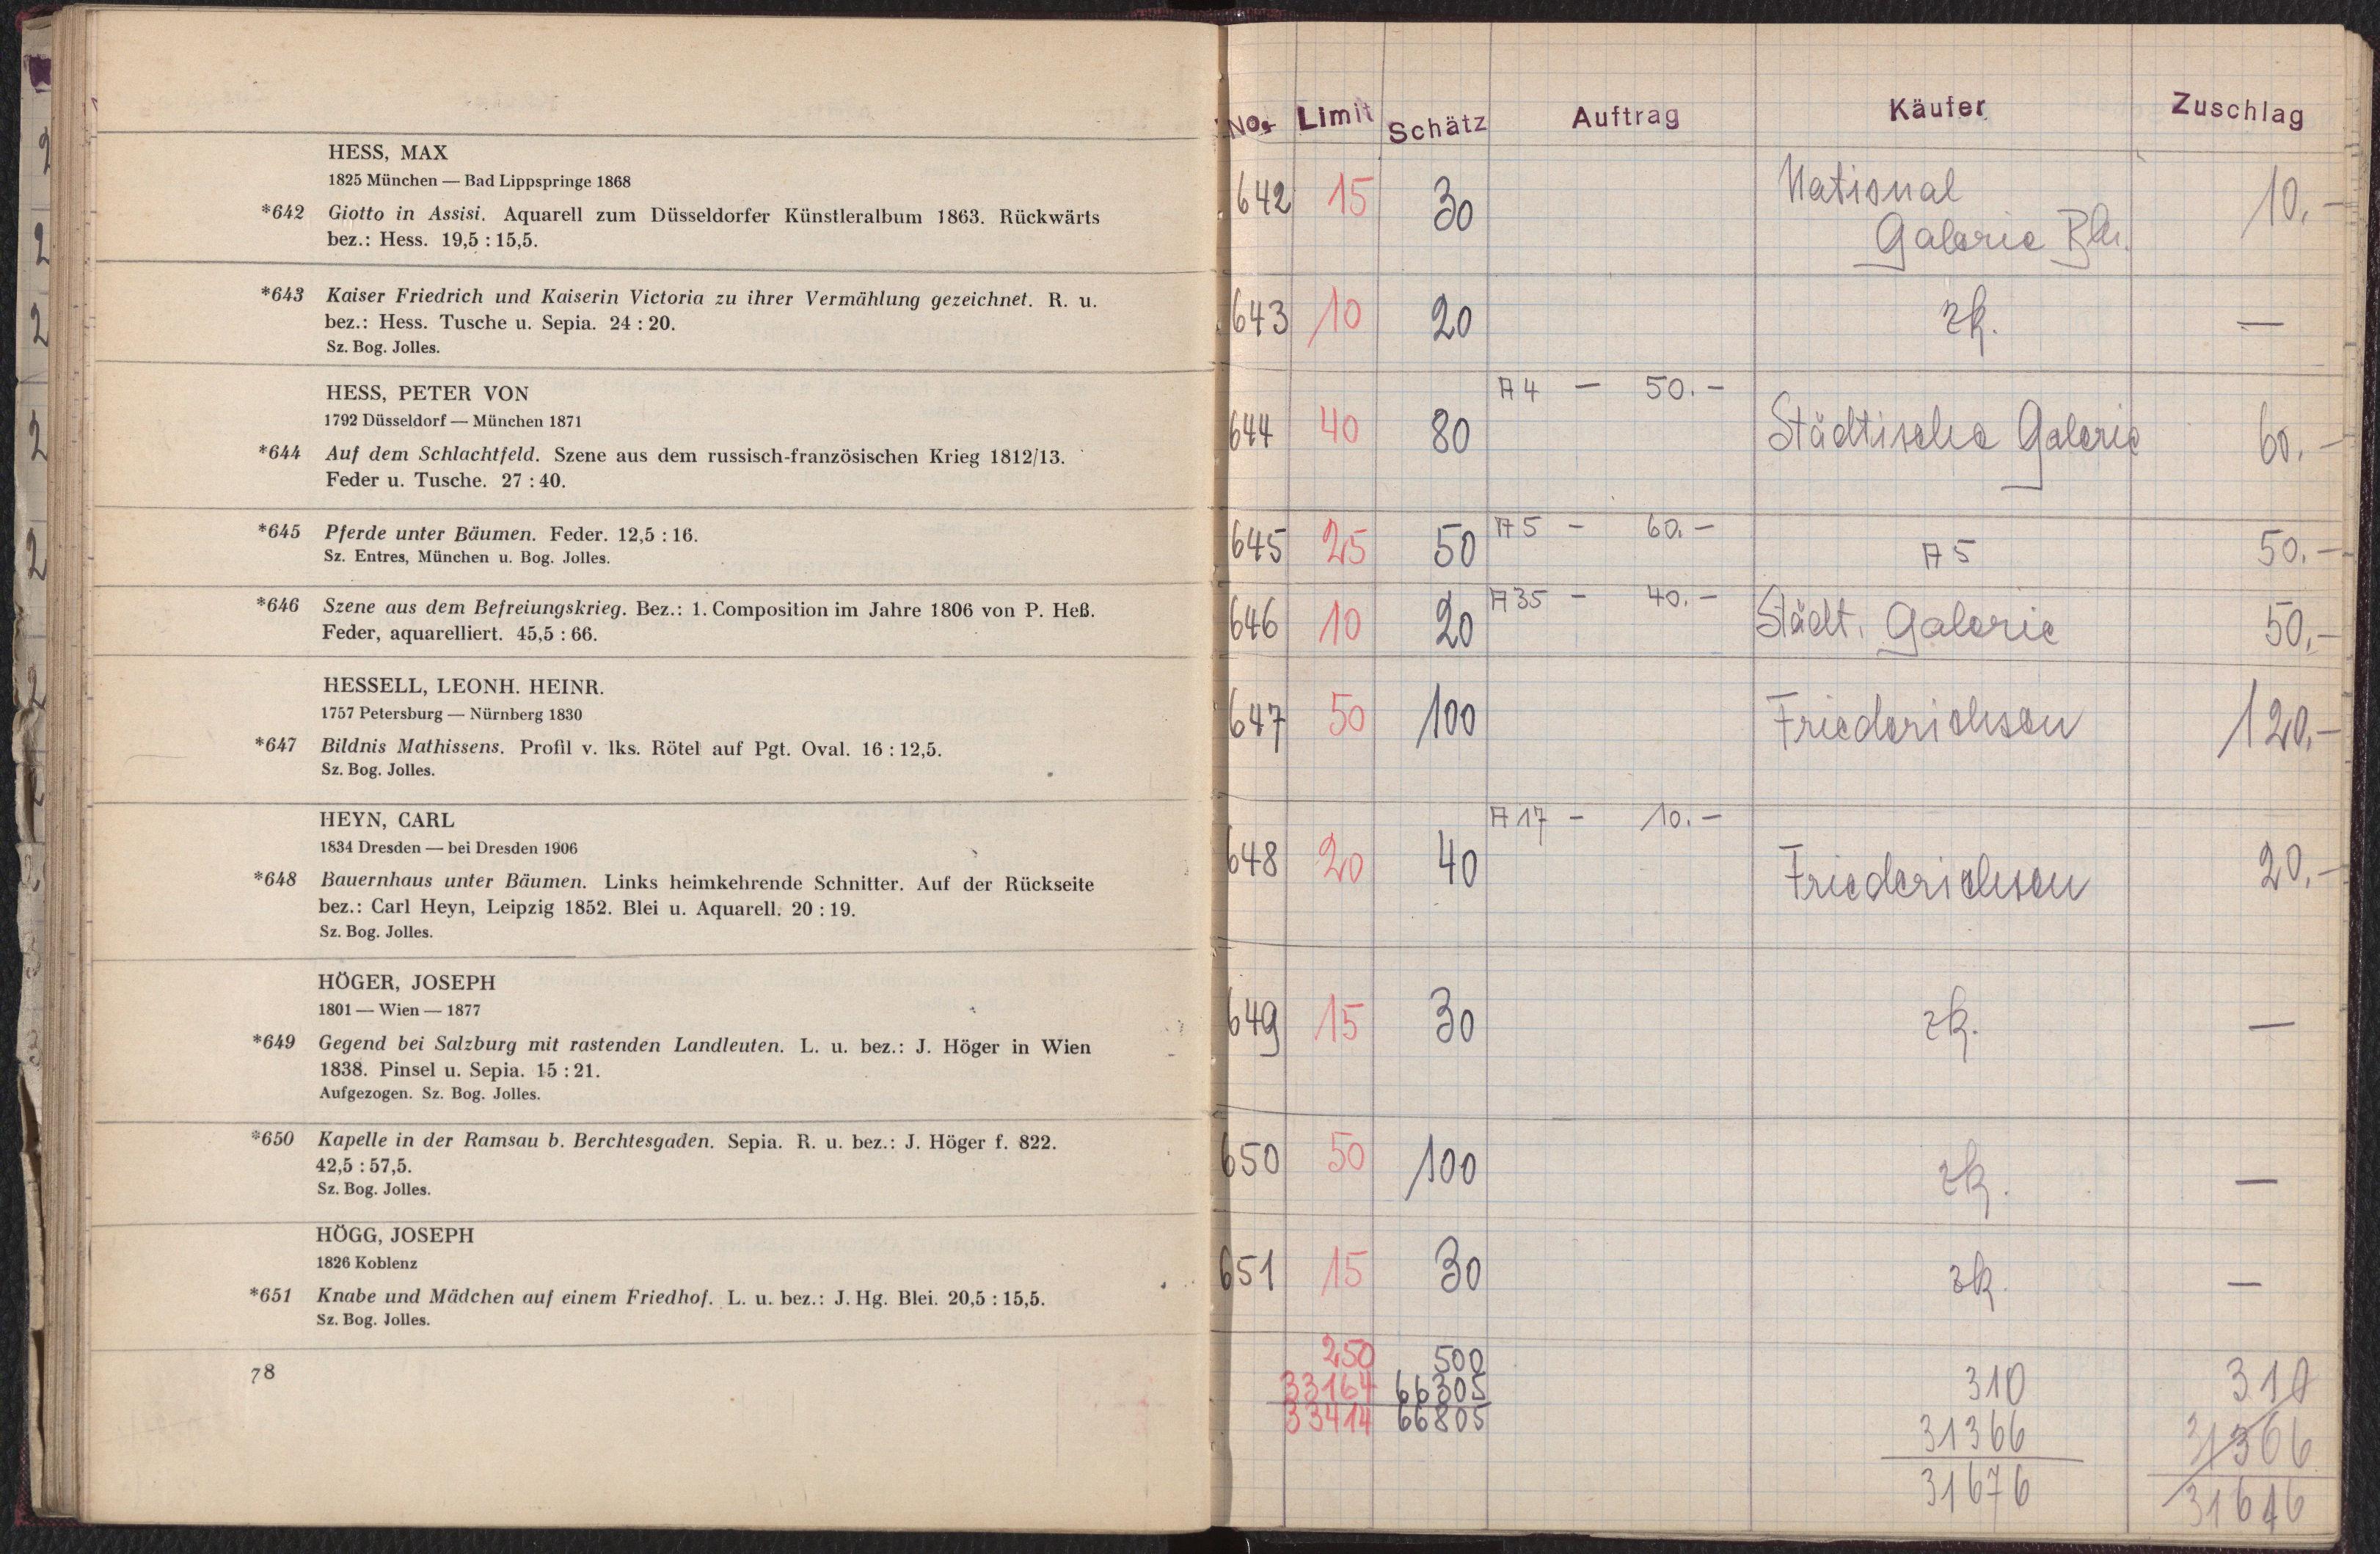 HESS, MAX
1825 München — Bad Lippspringe 1868
*642 Giotto in Assisi. Aquarell zum Düsseldorfer Künstleralbum 1863. Rückwärts
bez.: Hess. 19,5 : 15,5.
*643 Kaiser Friedrich und Kaiserin Victoria zu ihrer Vermählung gezeichnet. R. u.
bez.: Hess. Tusche u. Sepia. 24 : 20.
Sz. Bog. Jolles.
HESS, PETER VON
1792 Düsseldorf — München 1871
*644 Auf dem Schlachtfeld. Szene aus dem russisch-französischen Krieg 1812/13.
Feder u. Tusche. 27 : 40.
*645 Pferde unter Bäumen. Feder. 12,5 : 16.
Sz. Entres, München u. Bog. Jolles.
*646 Szene aus dem Befreiungskrieg. Bez.: 1. Composition im Jahre 1806 von P. Heß.
Feder, aquarelliert. 45,5 : 66.
HESSELL, LEONH. HEINR.
1757 Petersburg — Nürnberg 1830
*647 Bildnis Mathissens. Profil v. lks. Rötel auf Pgt. Oval. 16 : 12,5.
Sz. Bog. Jolles.
HEYN, CARL
1834 Dresden — bei Dresden 1906
*648 Bauernhaus unter Bäumen. Links heimkehrende Schnitter. Auf der Rückseite
bez.: Carl Heyn, Leipzig 1852. Blei u. Aquarell. 20 : 19.
Sz. Bog. Jolles.
HÖGER, JOSEPH
1801 — Wien — 1877
*649 Gegend bei Salzburg mit rastenden Landleuten. L. u. bez.: J. Höger in Wien
1838. Pinsel u. Sepia. 15 : 21.
Aufgezogen. Sz. Bog. Jolles.
*650 Kapelle in der Ramsau b. Berchtesgaden. Sepia. R. u. bez.: J. Höger f. 822.
42,5 : 57,5.
Sz. Bog. Jolles.
HÖGG, JOSEPH
1826 Koblenz
*651 Knabe und Mädchen auf einem Friedhof. L. u. bez.: J. Hg. Blei. 20,5 : 15,5.
Sz. Bog. Jolles.
78
No. Limit Schätz Auftrag Käufer Zuschlag
642 15 30 National 10.-
Galerie Bln.
643 10 20 zk. —
A 4 — 50.-
644 40 80 Städtische Galerie 60.-
A 5 — 60.-
645 25 50 A 5 50.-
A 35 — 40.-
646 10 20 Städt. Galerie 50.-
647 50 100 Friederichsen 120.-
A 17 — 10.-
648 20 40 Friederichsen 20.-
649 15 30 zk. —
650 50 100 zk. —
651 15 30 zk. —
250 500 310 310
33164 66305 31366 31366
33414 66805 31676 31646